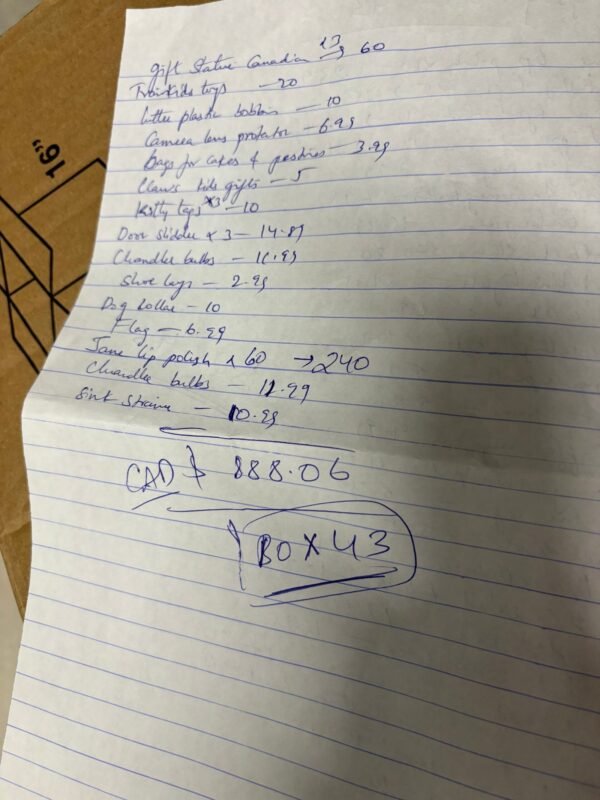 16"
Gift Statue Canadian 13 → 60
kids toys — 20
Little plastic bobbins — 10
Camera lens protator — 6.99
Bags for cakes & pastries — 3.99
Claws kids gifts — 5
Kitty tops x3 — 10
Door slidder x 3 — 14.89
Chandlee bulbs — 11.99
Shoe lays — 2.99
Dog Collar — 10
Flag — 6.99
Jane lip polish x 60 → 240
Chandlee bulbs — 11.99
Sink Strainer — 10.99
CAD $ 888.06
BOX 43